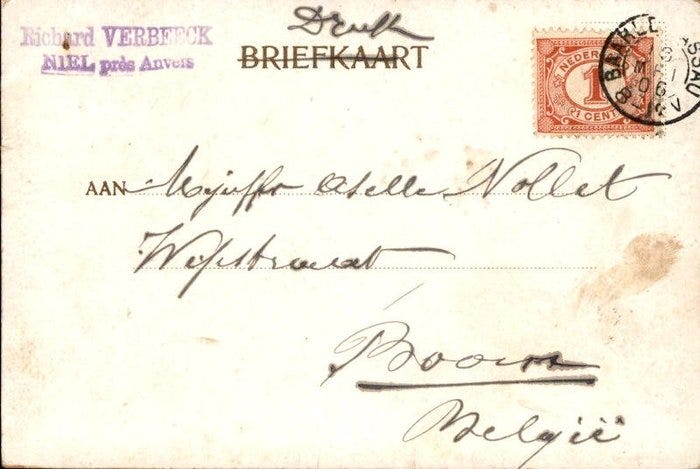 Richard VERBEECK
NIEL près Anvers
Druk
BRIEFKAART
NEDERLAND
1
1 CENT
BAARLE NASSAU
MEI 06
AAN Mejuffr Adelle Nollet
Boom
België